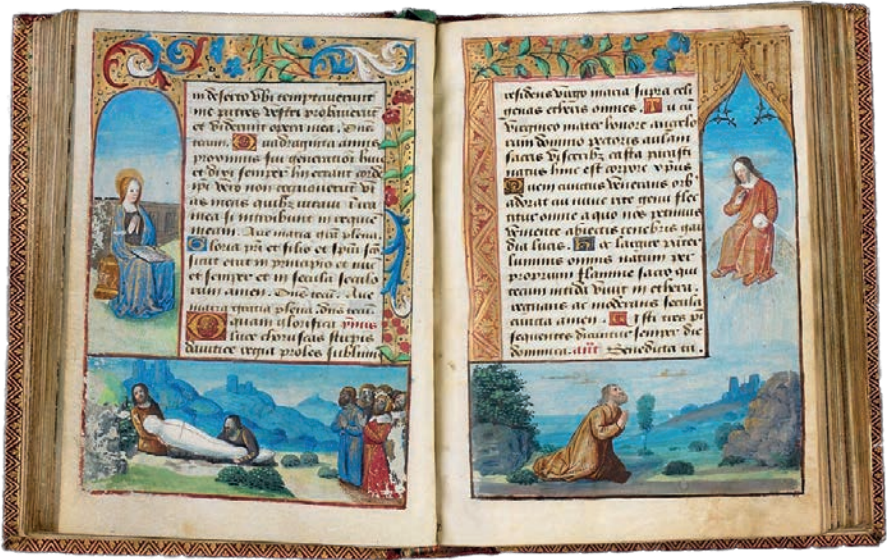 in deserto Vbi temptauerunt
me patres vestri probauerunt
et viderunt opera mea. Dns
tecum. Quadraginta annis
proximus fui generationi huic
et dixi semper hii errant corde
ipi vero non cognouerunt vi
as meas quibus iuraui i ira
mea si introibunt in requie
meam. Aue maria gra plena.
Gloria pri et filio et spui sa
sicut erat in principio et nuc
et semper et in secula seculo
rum amen. Dns tecu. Aue
maria gratia plena. dns tecu
Quam glorifica ymnus
luce choruscas stirpis
dauitice regia proles sublimis
residens virgo maria supra celi
genas etheris omnes. Tu cu
virgineo mater honore angelo
rum domino pectoris aulam
sacris viscerib casta parasti
natus hinc est corpore xpus
Quem cunctus venerans orb
adorat cui nunc rite genu flec
titur omne a quo nos petimus
veniente abiectis tenebris gau
dia lucis. Hec largire pater
luminis omnis natum per
proprium flamine sacro qui
tecum nitida viuit in ethera
regnans ac moderans secula
cuncta amen. Isti tres ps
sequentes dicuntur semper die
dominica. ant Benedicta tu.